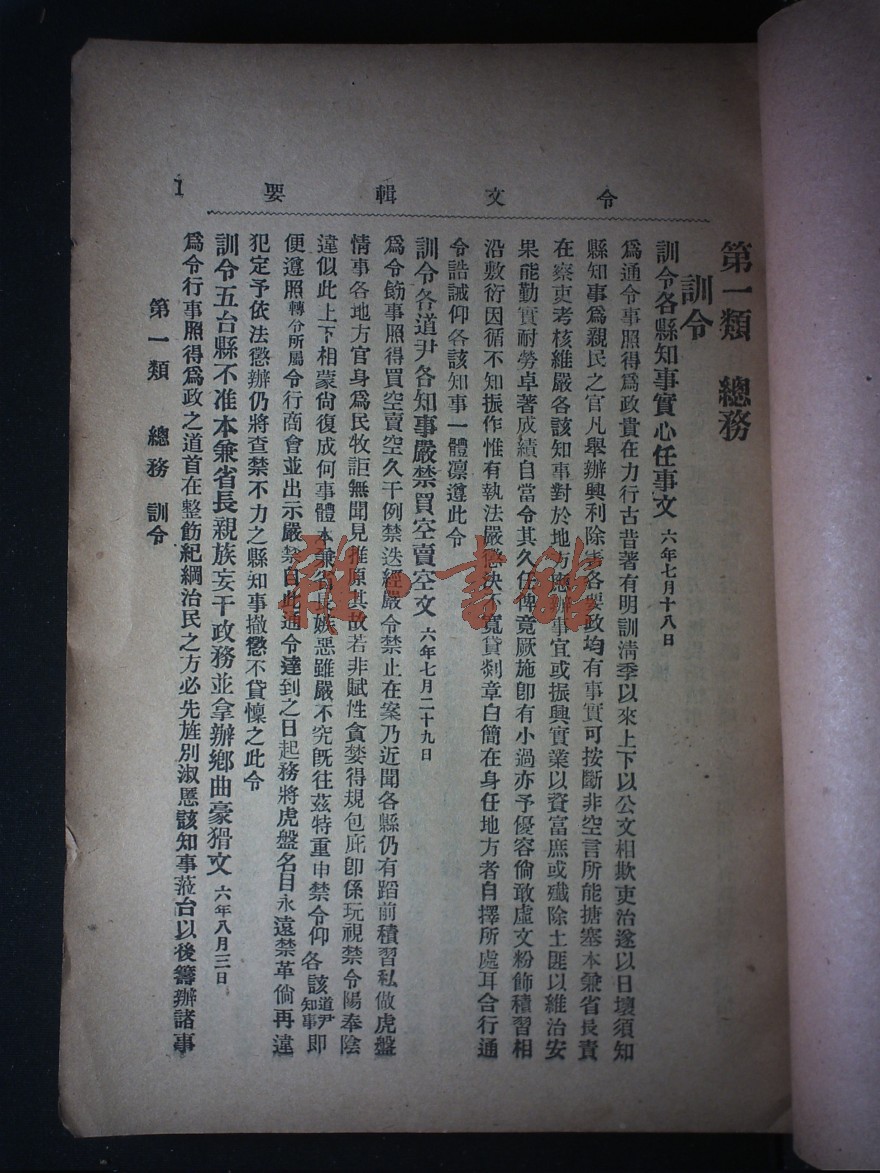 令文輯要
1
第一類 總務
訓令
訓令各縣知事實心任事文 六年七月十八日
爲通令事照得爲政貴在力行古昔著有明訓淸季以來上下以公文相欺吏治遂以日壞須知
縣知事爲親民之官凡舉辦興利除害各要政均有事實可按斷非空言所能搪塞本兼省長責
在察吏考核維嚴各該知事對於地方應辦事宜或振興實業以資富庶或殲除土匪以維治安
果能勤實耐勞卓著成績自當令其久任俾竟厥施卽有小過亦予優容倘敢虛文粉飾積習相
沿敷衍因循不知振作惟有執法嚴懲決不寬貸剡章白簡在身任地方者自擇所處耳合行通
令誥誡仰各該知事一體凛遵此令
訓令各道尹各知事嚴禁買空賣空文 六年七月二十九日
爲令飭事照得買空賣空久干例禁迭經嚴令禁止在案乃近聞各縣仍有蹈前積習私做虎盤
情事各地方官身爲民牧詎無聞見推原其故若非賦性貪婪得規包庇卽係玩視禁令陽奉陰
違似此上下相蒙尙復成何事體本兼省長嫉惡雖嚴不究旣往茲特重申禁令仰各該道尹知事卽
便遵照轉令所屬令行商會並出示嚴禁自此通令達到之日起務將虎盤名目永遠禁革倘再違
犯定予依法懲辦仍將查禁不力之縣知事撤懲不貸懍之此令
訓令五台縣不准本兼省長親族妄干政務並拿辦鄉曲豪猾文 六年八月三日
爲令行事照得爲政之道首在整飭紀綱治民之方必先旌別淑慝該知事蒞台以後籌辦諸事
第一類 總務 訓令
雜書館